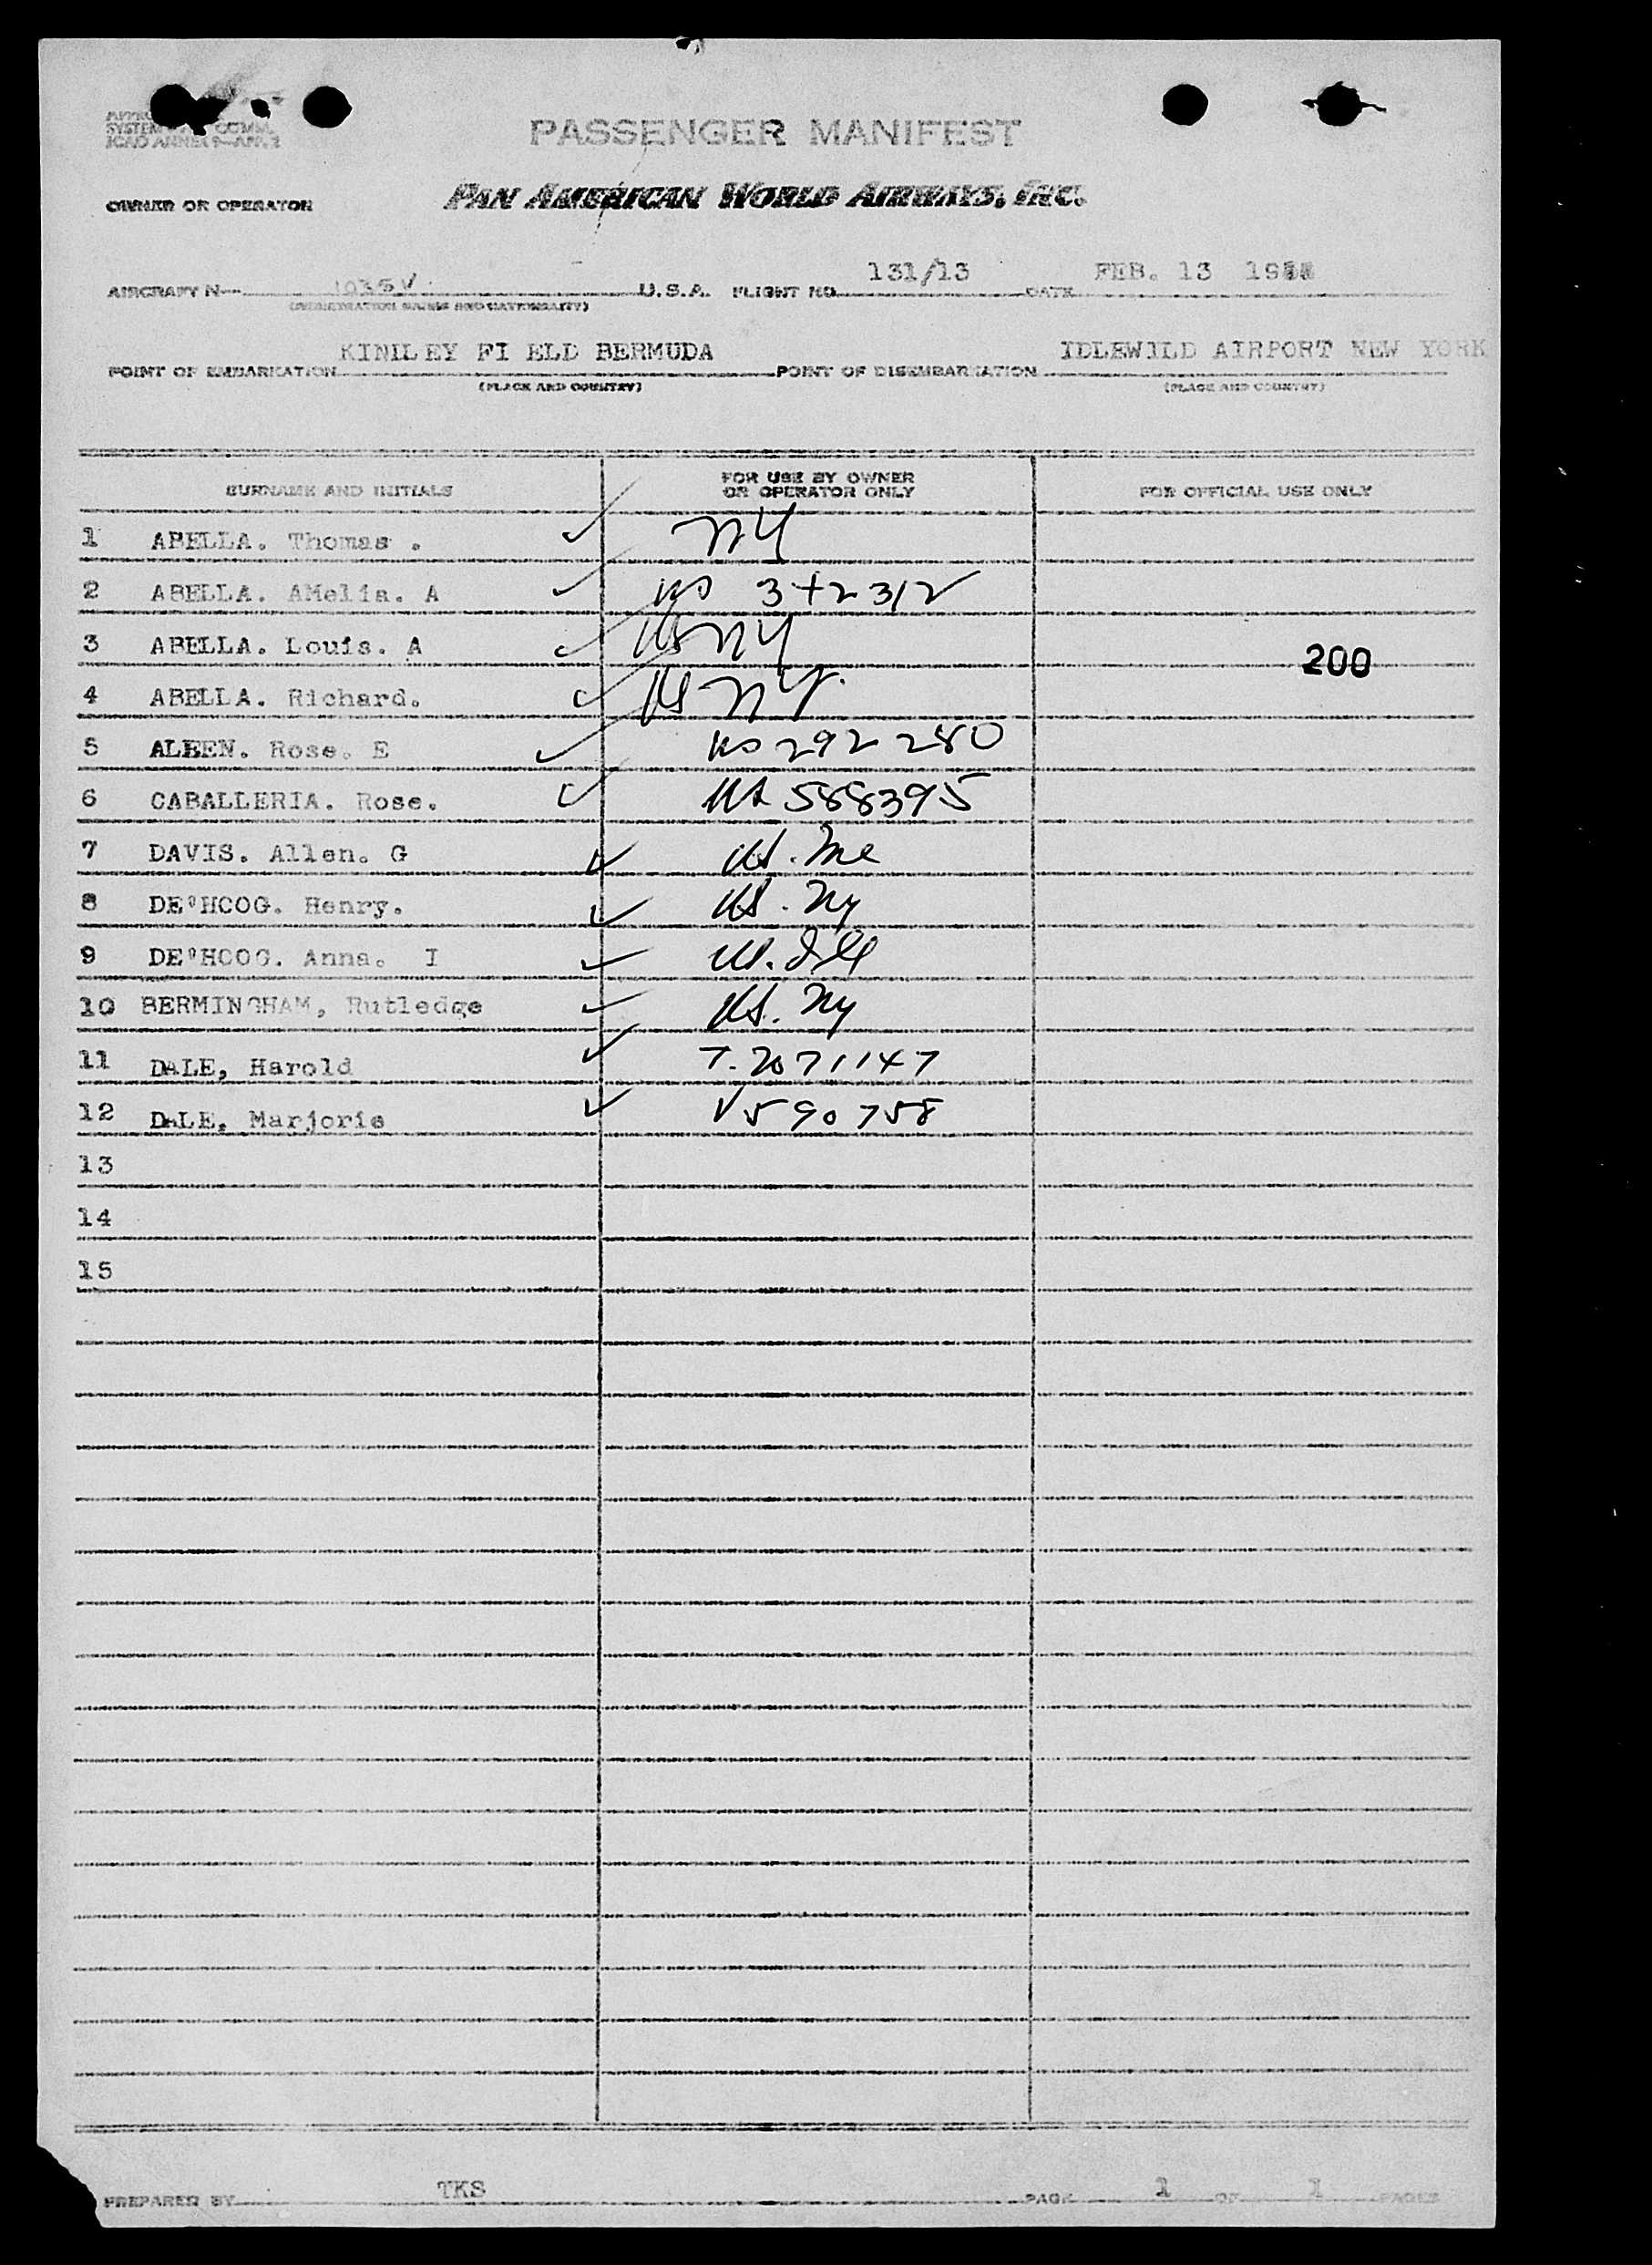 PASSENGER MANIFEST
OWNER OR OPERATOR PAN AMERICAN WORLD AIRWAYS, INC.
AIRCRAFT N 1035V U.S.A. FLIGHT NO. 131/13 DATE FEB. 13
POINT OF EMBARKATION KINILEY FI ELD BERMUDA POINT OF DISEMBARKATION IDLEWILD AIRPORT NEW YORK
(PLACE AND COUNTRY) (PLACE AND COUNTRY)
SURNAME AND INITIALS FOR USE BY OWNER OR OPERATOR ONLY FOR OFFICIAL USE ONLY
1 ABELLA. Thomas . NY
2 ABELLA. AMelia. A
3 ABELLA. Louis. A US NY 200
4 ABELLA. Richard. US NY.
5 ALEEN. Rose. E US 292280
6 CABALLERIA. Rose. US 588395
7 DAVIS. Allen. G US. Me
8 DE'HOOG. Henry. US. Ny
9 DE'HOOG. Anna. I US. Ill
10 BERMINGHAM, Rutledge US. Ny
11 DALE, Harold T. 2071147
12 DALE, Marjorie V590758
13
14
15
PREPARED BY TKS PAGE 1 OF 1 PAGES